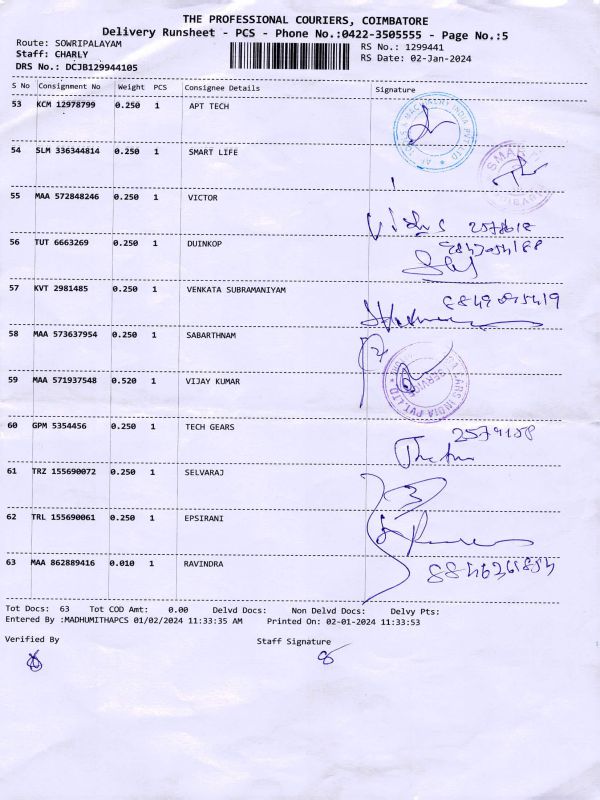 THE PROFESSIONAL COURIERS, COIMBATORE
Delivery Runsheet - PCS - Phone No.:0422-3505555 - Page No.:5
Route: SOWRIPALAYAM
Staff: CHARLY
DRS No.: DCJB129944105
RS No.: 1299441
RS Date: 02-Jan-2024
S No Consignment No Weight PCS Consignee Details Signature
53 KCM 12978799 0.250 1 APT TECH
54 SLM 336344814 0.250 1 SMART LIFE
55 MAA 572848246 0.250 1 VICTOR
56 TUT 6663269 0.250 1 DUINKOP
57 KVT 2981485 0.250 1 VENKATA SUBRAMANIYAM
58 MAA 573637954 0.250 1 SABARTHNAM
59 MAA 571937548 0.520 1 VIJAY KUMAR
60 GPM 5354456 0.250 1 TECH GEARS
61 TRZ 155690072 0.250 1 SELVARAJ
62 TRL 155690061 0.250 1 EPSIRANI
63 MAA 862889416 0.010 1 RAVINDRA
Tot Docs: 63 Tot COD Amt: 0.00 Delvd Docs: Non Delvd Docs: Delvy Pts:
Entered By :MADHUMITHAPCS 01/02/2024 11:33:35 AM Printed On: 02-01-2024 11:33:53
Verified By Staff Signature